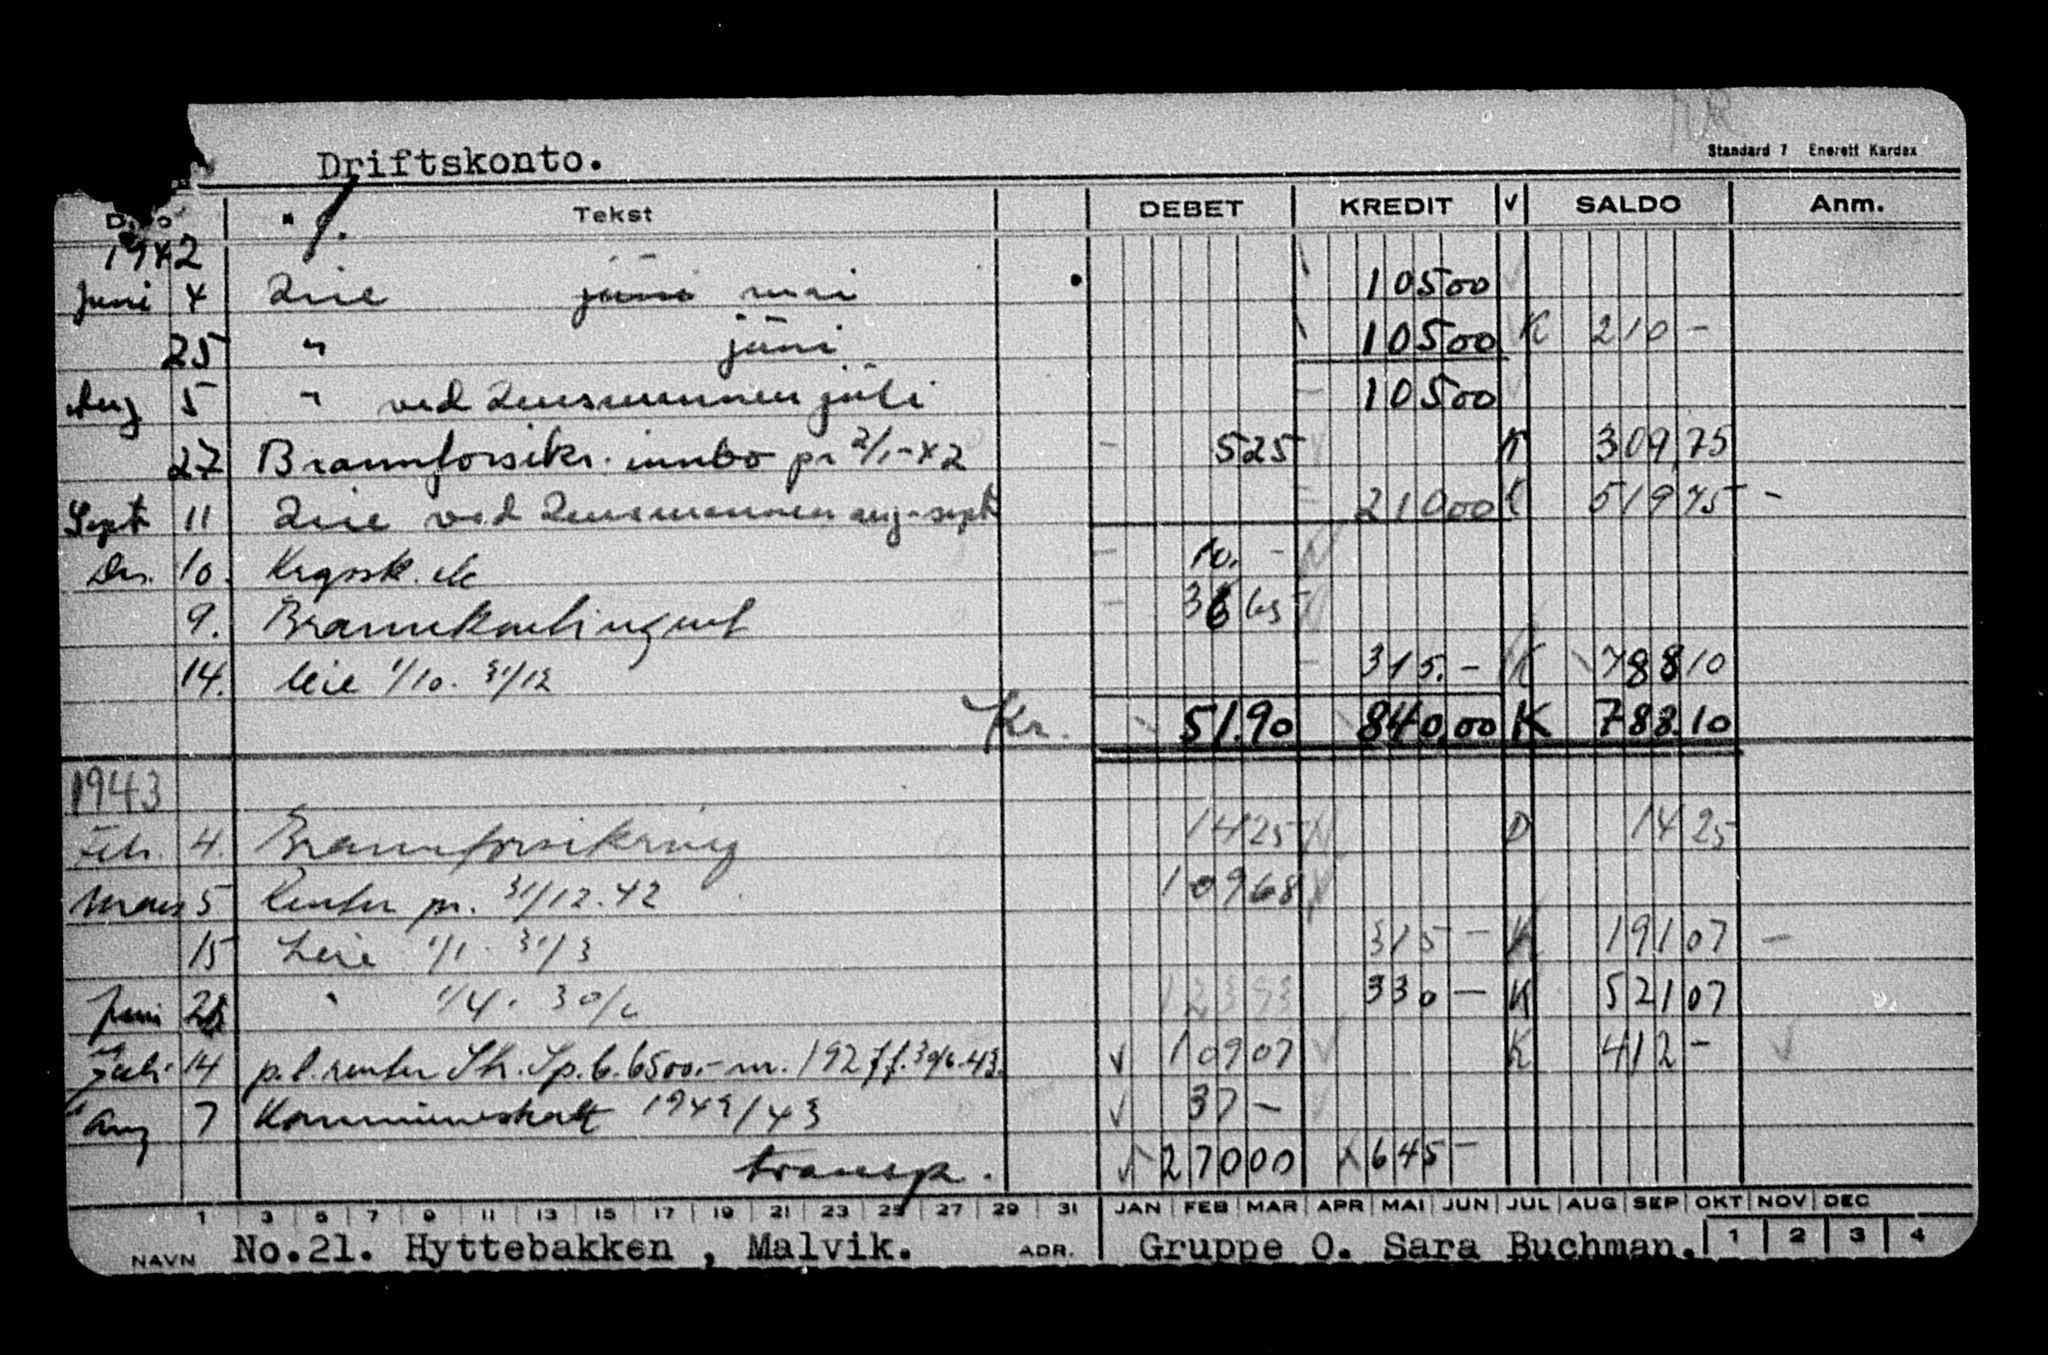 Driftskonto.
Standard 7 Enerett Kardex
Tekst DEBET KREDIT V SALDO Anm.
1942
Juni 4 Leie juni mai 105 00
25 " juni 105 00 K 210 -
Aug 5 " ved Lensmannen juli 105 00
27 Brannforsikr. innbo pr 2/1-42 5 25 K 309,75
Sept 11 Leie ved Lensmannen aug-sept 210 00 K 519 75 -
Des. 10. 10. -
9. Brannkontingent 36 65
14. leie 1/10. 31/12 315.- K 788 10
Kr. 51.90 840,00 K 788.10
1943
Febr. 4. Brannforsikring 14 25 D 14 25
Mars 5 Renter pr. 31/12.42 109 68
15 Leie 1/1. 31/3 315 - K 191 07 -
Juni 28 " 1/4. 30/6 123 93 330 - K 521 07
Juli 14 p.l. renter Str. Sp.b. 6500.- nr. 19277. 30/6.43. 109 07 K 412 -
Aug 7 Kommuneskatt 1942/43 37 -
transp. 270 00 645 -
1 3 5 7 9 11 13 15 17 19 21 23 25 27 29 31 JAN FEB MAR APR MAI JUN JUL AUG SEP OKT NOV DEC
NAVN No.21. Hyttebakken , Malvik. ADR. Gruppe O. Sara Buchman. 1 2 3 4